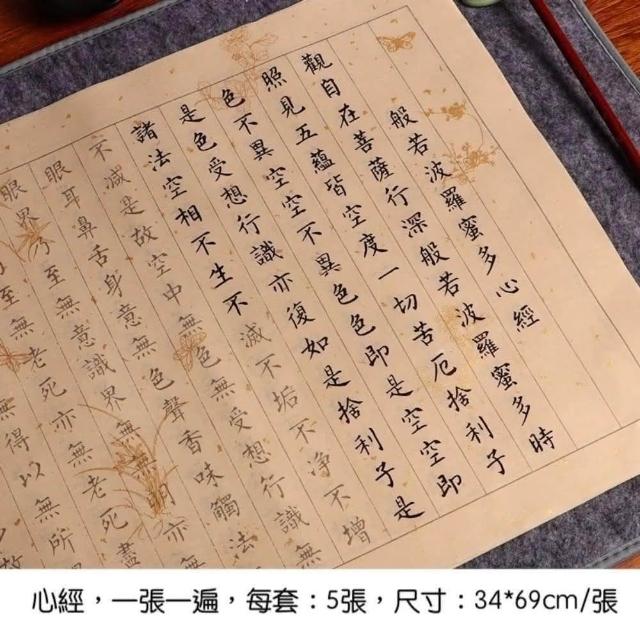 般若波羅蜜多心經
觀自在菩薩行深般若波羅蜜多時
照見五蘊皆空度一切苦厄捨利子
色不異空空不異色色即是空空即
是色受想行識亦復如是捨利子是
諸法空相不生不滅不垢不净不增
不减是故空中無色無受想行識無
眼耳鼻舌身意無色聲香味觸法
眼界乃至無意識界無無明亦
至無老死亦無老死盡
無得以無所
故
心經，一張一遍，每套：5張，尺寸：34*69cm/張